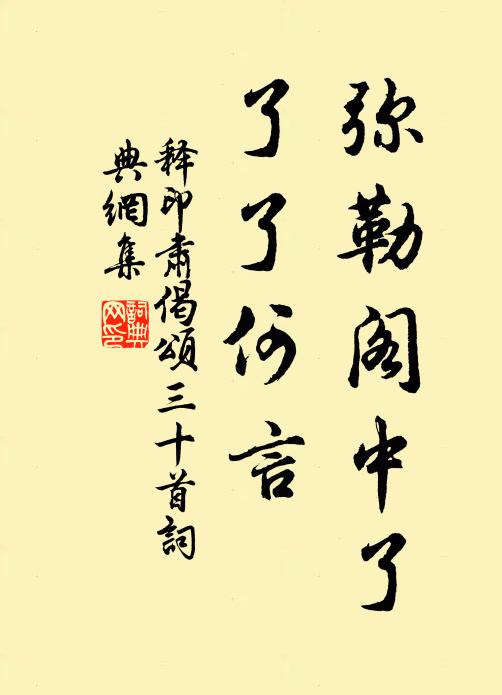 弥勒阁中了
了了何言
释印肃偈颂三十首詞
典網集
詞典网印